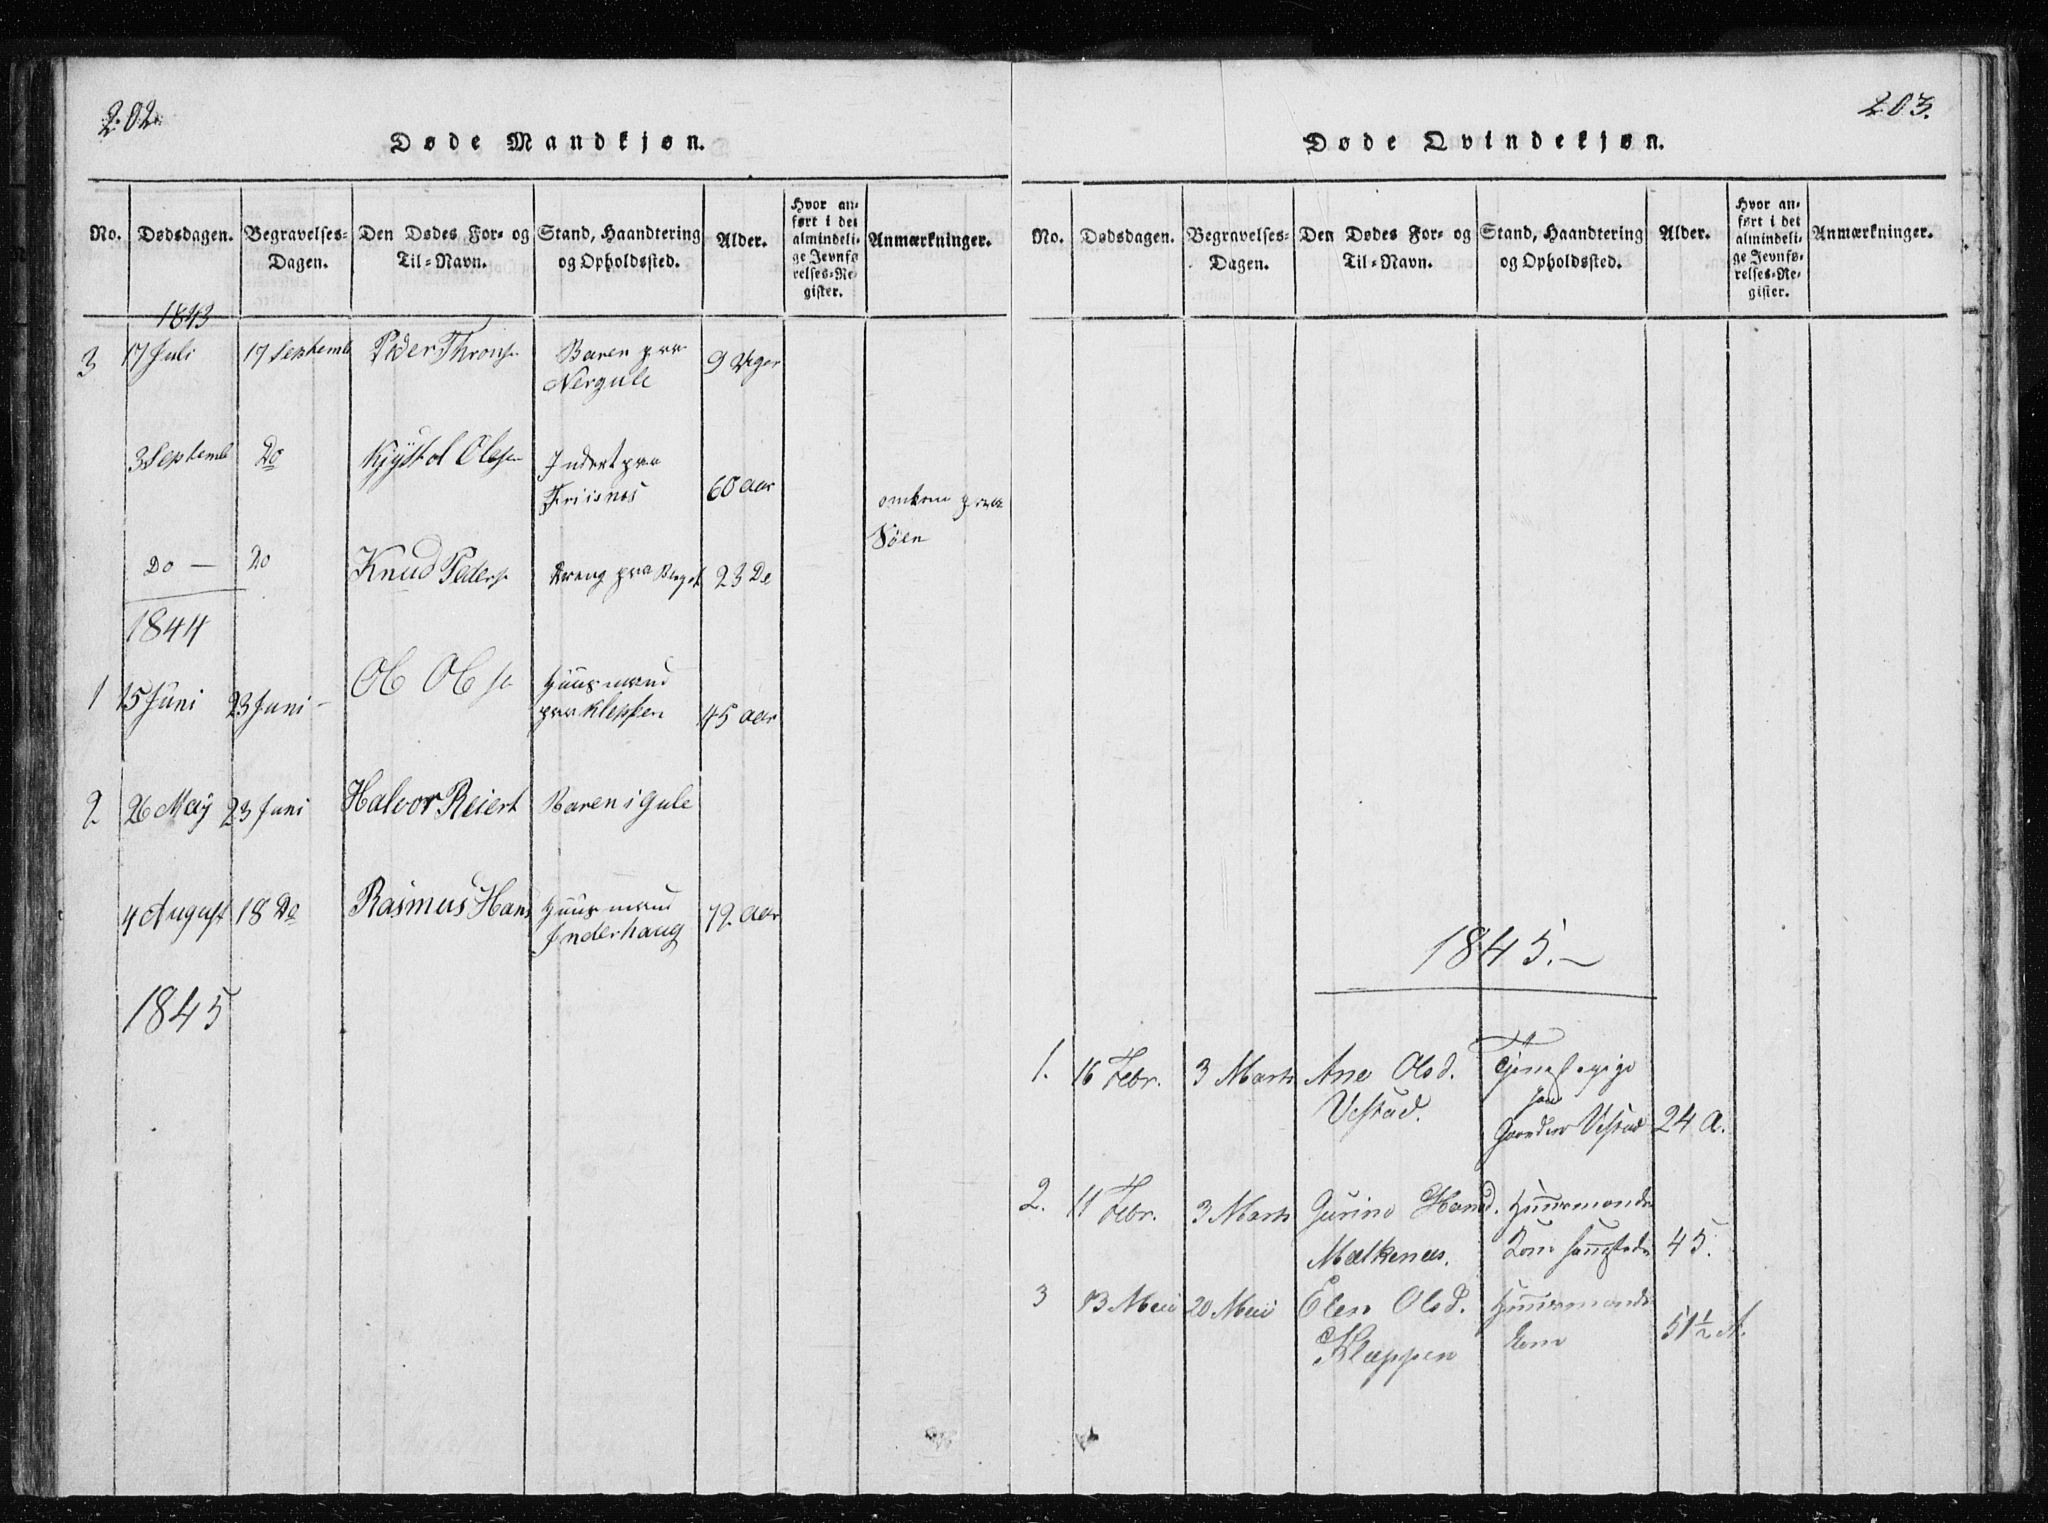 202.
Døde Mandkjøn.
No. Dødsdagen. Begravelses-Dagen. Den Dødes For- og Til-Navn. Stand, Haandtering og Opholdssted. Alder. Hvor anført i det almindelige Jevnførelses-Register. Anmærkninger.
1843
3 17 Juli 17 Septemb Peder Throns Baren paa 9 Uger
Nergule
3 Septemb Do Olesen Indert paa
Friisnes 60 aar omkom paa
Søen
Do — Do Knud Peders Dreng paa Berget 23 Do
1844
1 15 Juni 23 Juni – Ole Olse Huusmand
paa Kleppen 45 aar
2 26 May 23 Juni Halvor Reiert Baren i Gule
4 August 18 Do Rasmus Hans Huusmand 79. aar
Inderhaug
1845
203.
Døde Qvindekjøn.
No. Dødsdagen. Begravelses-Dagen. Den Dødes For- og Til-Navn. Stand, Haandtering og Opholdssted. Alder. Hvor anført i det almindelige Jevnførelses-Register. Anmærkninger.
1845. –
1. 16 Febr. 3 Marts Ane Olsd. Tjenestepige
Vestad. paa
Gaarden Vestad 24 A.
2. 11 Febr. 3 Marts Gurine Hansd. Huusmands
Mælkenæs. Kone 45.
3 13 Mai 20 Mai Elen Olsd. Huusmands
Klæppen Kone 51 ½ A.